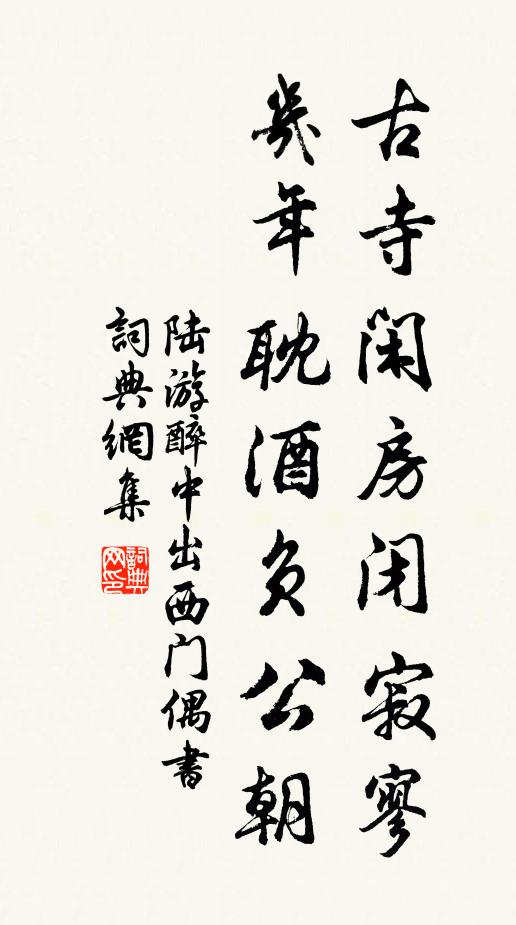 古寺闲房闭寂寥
幾年耽酒负公朝
陆游醉中出西门偶書
詞典網集
詞典网印